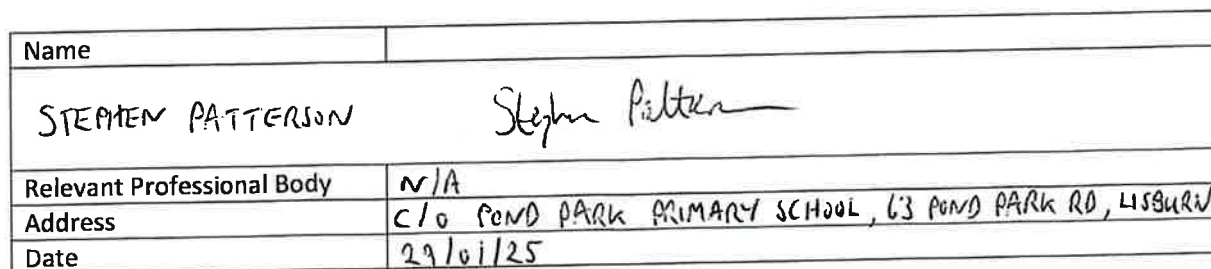 Name
STEPHEN PATTERSON Stephen Patterson
Relevant Professional Body N/A
Address C/O POND PARK PRIMARY SCHOOL, 63 POND PARK RD, LISBURN
Date 29/01/25